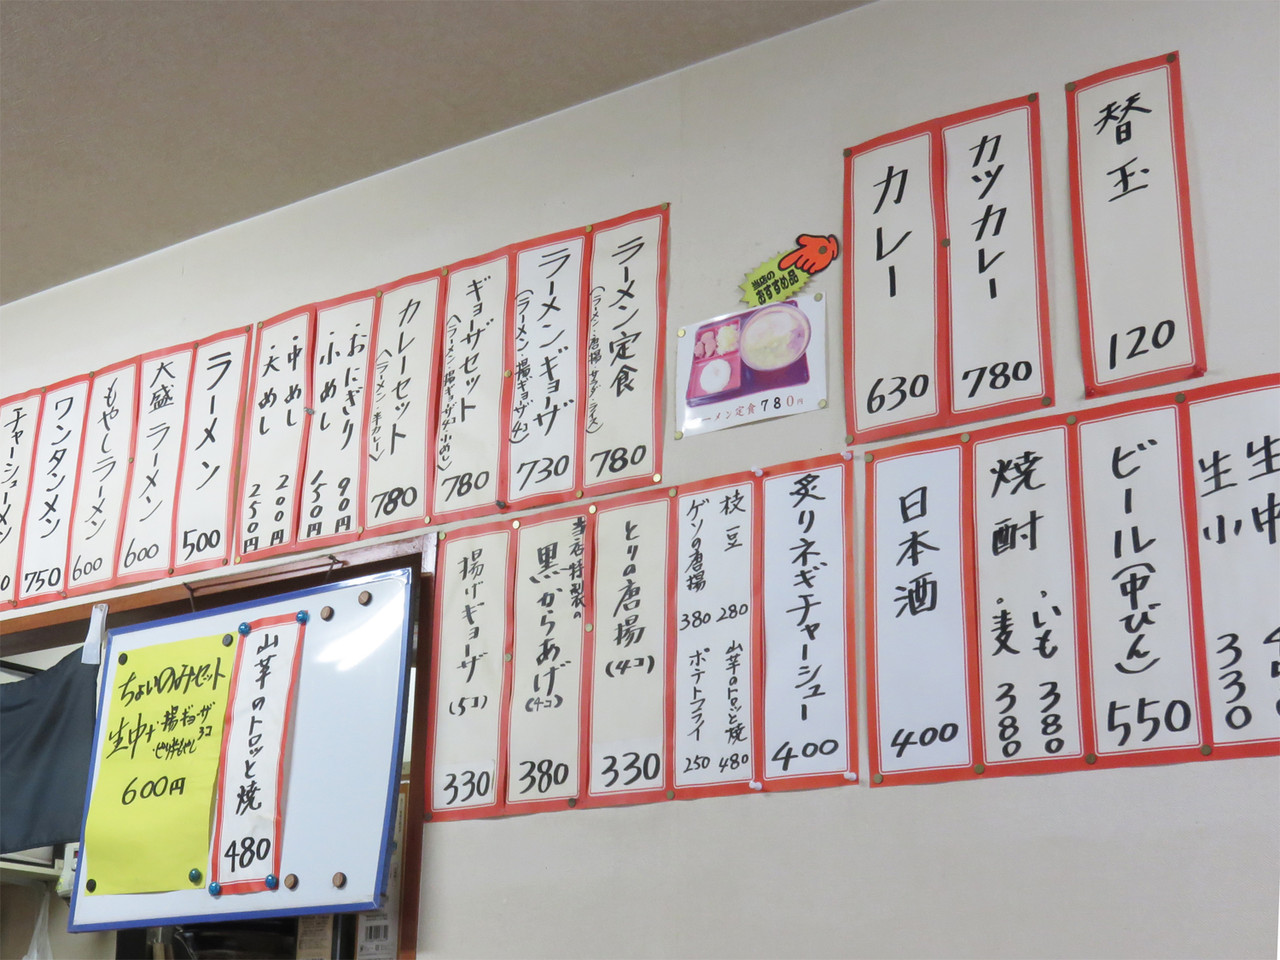 替玉
120
カツカレー
780
カレー
630
当店の
おすすめ品
ーメン定食 780円
ラーメン定食
(ラーメン・唐揚・サラダ・ライス)
780
ラーメンギョーザ
(ラーメン・揚ギョーザ4コ)
730
ギョーザセット
(ラーメン・揚ギョーザ4コ・小めし)
780
カレーセット
(ラーメン・半カレー)
780
・おにぎり 90円
・小めし 150円
・中めし 200円
・大めし 250円
ラーメン
500
大盛ラーメン
600
もやしラーメン
600
ワンタンメン
750
チャーシューメン
生中
生小
330
ビール(中びん)
550
焼酎
・いも 380
・麦 380
日本酒
400
炙りネギチャーシュー
400
枝豆 280
山芋のトロッと焼 480
ゲソの唐揚 380
ポテトフライ 250
とりの唐揚
(4コ)
330
当店特製の
黒からあげ
(4コ)
380
揚げギョーザ
(5コ)
330
山芋のトロッと焼
480
ちょいのみセット
生中+揚ギョーザ
3コ
600円